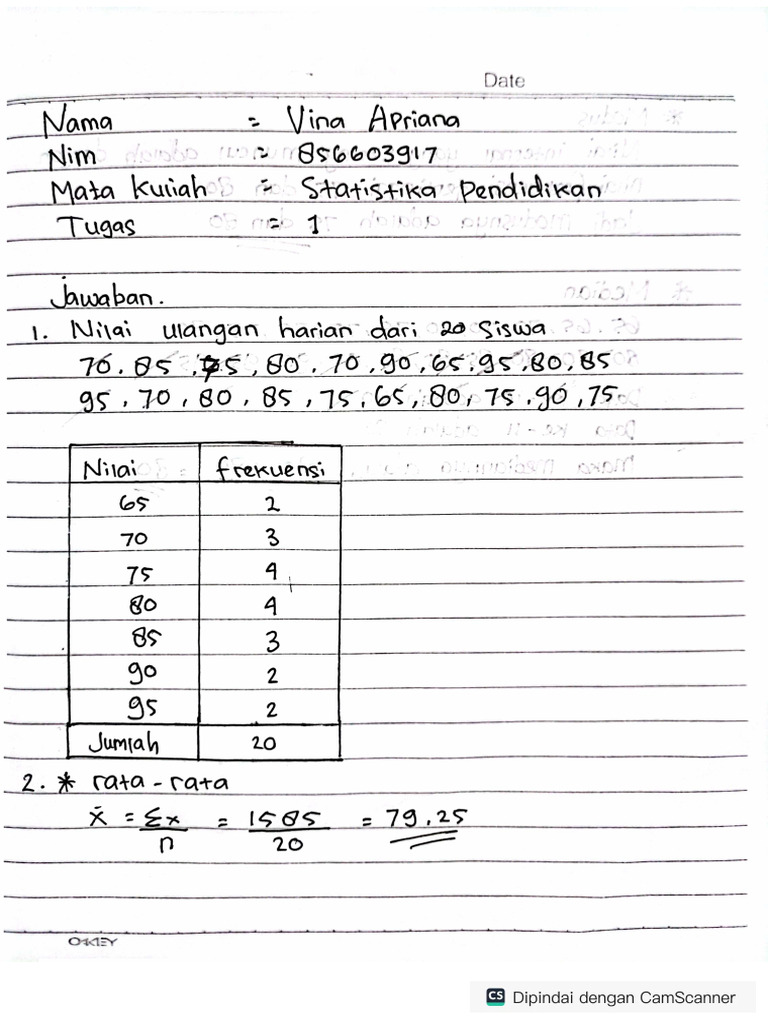 Date
Nama = Vina Apriana
Nim = 856603917
Mata Kuliah = Statistika Pendidikan
Tugas = 1
Jawaban.
1. Nilai ulangan harian dari 20 Siswa
70, 85, 75, 80, 70, 90, 65, 95, 80, 85
95, 70, 80, 85, 75, 65, 80, 75, 90, 75
Nilai frekuensi
65 2
70 3
75 4
80 4
85 3
90 2
95 2
Jumlah 20
2. * rata-rata
x̄ = Σx / n = 1585 / 20 = 79,25
OAKLEY
CS Dipindai dengan CamScanner